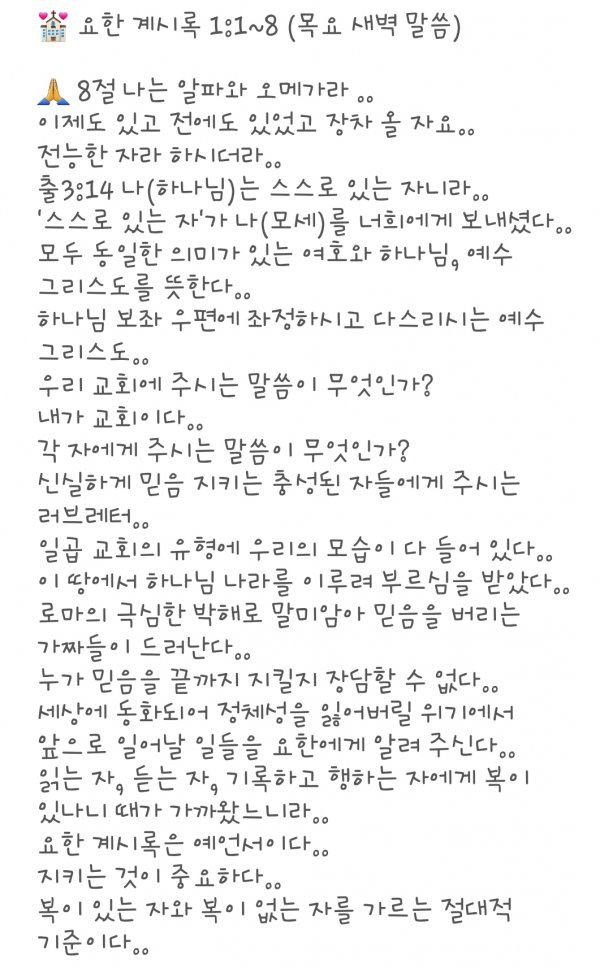 💒 요한 계시록 1:1~8 (목요 새벽 말씀)
🙏 8절 나는 알파와 오메가라 。。
이제도 있고 전에도 있었고 장차 올 자요。。
전능한 자라 하시더라。。
출3:14 나(하나님)는 스스로 있는 자니라。。
'스스로 있는 자'가 나(모세)를 너희에게 보내셨다。。
모두 동일한 의미가 있는 여호와 하나님, 예수
그리스도를 뜻한다。。
하나님 보좌 우편에 좌정하시고 다스리시는 예수
그리스도。。
우리 교회에 주시는 말씀이 무엇인가?
내가 교회이다。。
각 자에게 주시는 말씀이 무엇인가?
신실하게 믿음 지키는 충성된 자들에게 주시는
러브레터。。
일곱 교회의 유형에 우리의 모습이 다 들어 있다。。
이 땅에서 하나님 나라를 이루려 부르심을 받았다。。
로마의 극심한 박해로 말미암아 믿음을 버리는
가짜들이 드러난다。。
누가 믿음을 끝까지 지킬지 장담할 수 없다。。
세상에 동화되어 정체성을 잃어버릴 위기에서
앞으로 일어날 일들을 요한에게 알려 주신다。。
읽는 자, 듣는 자, 기록하고 행하는 자에게 복이
있나니 때가 가까왔느니라。。
요한 계시록은 예언서이다。。
지키는 것이 중요하다。。
복이 있는 자와 복이 없는 자를 가르는 절대적
기준이다。。